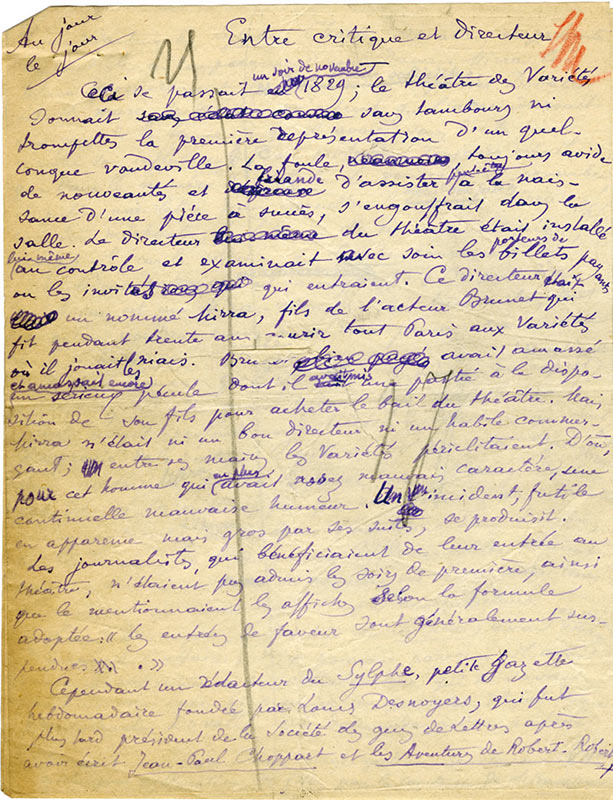 Au jour
le jour
Entre critique et directeur
un soir de novembre
Ceci se passait en 1829; le théâtre des Variétés
donnait sans tambours ni
trompettes la première représentation d'un quel-
conque vaudeville. La foule, toujours avide
de nouveautés et friande d'assister à la nais-
sance d'une pièce à succès, s'engouffrait dans la
salle. Le directeur du théâtre était installé
lui-même
au contrôle et examinait avec soin les billets
porteurs de payants
ou les invités qui entraient. Ce directeur était
un nommé Mirra, fils de l'acteur Brunet qui
fit pendant trente ans courir tout Paris aux Variétés
où il jouait les niais. Brunet avait amassé
et amassait encore
un sérieux pécule dont il avait mis une partie à la dispo-
sition de son fils pour acheter le bail du théâtre. Mais
Mirra n'était ni un bon directeur, ni un habile commer-
çant; entre ses mains les Variétés périclitaient. D'où,
pour cet homme qui avait en plus assez mauvais caractère, une
continuelle mauvaise humeur. Un incident, futile
en apparence mais gros par ses suites, se produisit.
Les journalistes, qui bénéficiaient de leur entrée au
théâtre, n'étaient pas admis les soirs de première, ainsi
que le mentionnaient les affiches selon la formule
adoptée: "les entrées de faveur sont généralement sus-
pendues."
Cependant un rédacteur du Sylphe, petite gazette
hebdomadaire fondée par Louis Desnoyers, qui fut
plus tard président de la Société des gens de Lettres après
avoir écrit Jean-Paul Choppart et les Aventures de Robert-Robert